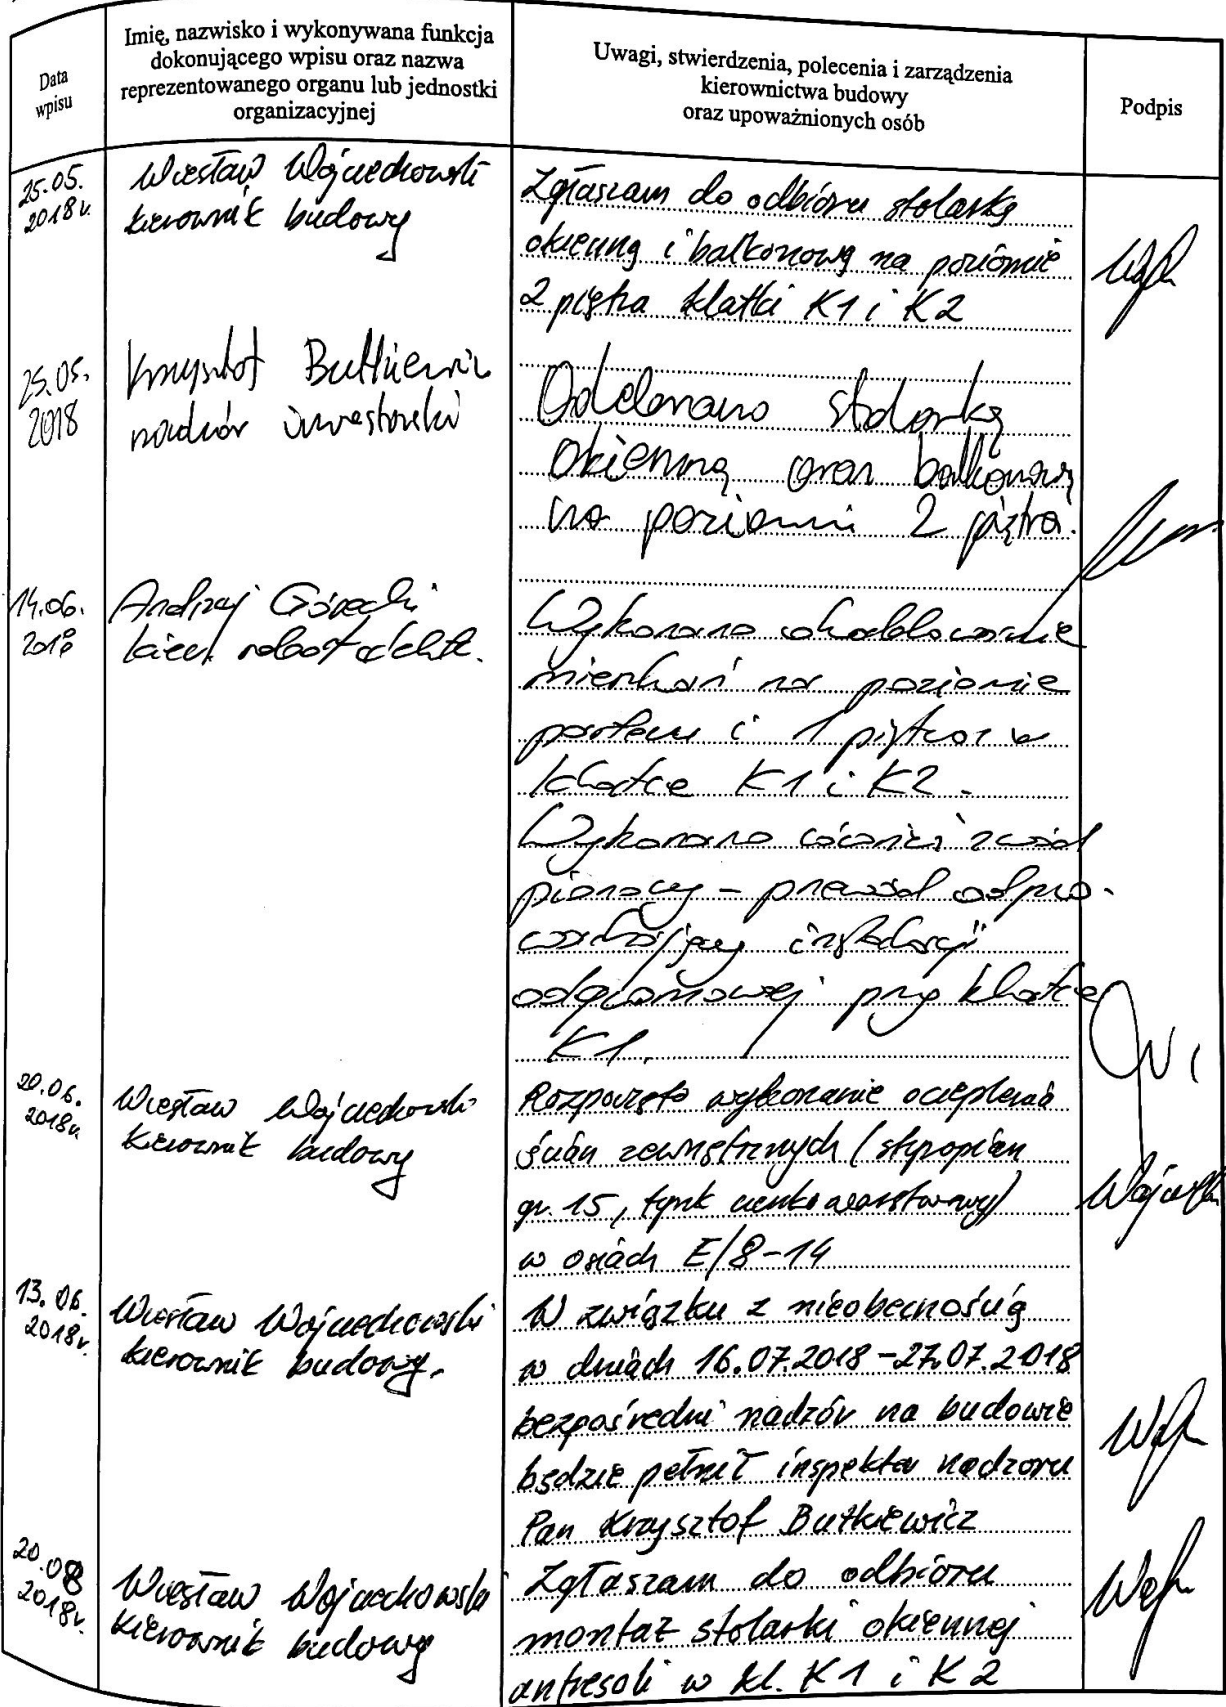 Data
wpisu
Imię, nazwisko i wykonywana funkcja
dokonującego wpisu oraz nazwa
reprezentowanego organu lub jednostki
organizacyjnej
Uwagi, stwierdzenia, polecenia i zarządzenia
kierownictwa budowy
oraz upoważnionych osób
Podpis
25.05.
2018r.
Wiesław Wojciechowski
kierownik budowy
Zgłaszam do odbioru stolarkę
okienną i balkonową na poziomie
2 piętra klatki K1 i K2
25.05.
2018
Krzysztof Butkiewicz
nadzór inwestorski
Odebrano stolarkę
okienną oraz balkonową
na poziomie 2 piętra.
14.06.
2018
Andrzej Górecki
kier. robót elektr.
Wykonano okablowanie
mieszkań na poziomie
parteru i 1 piętra w
klatce K1 i K2.
Wykonano zwód
pionowy - przewód odpro-
wadzający instalacji
odgromowej przy klatce
K1.
20.06.
2018r.
Wiesław Wojciechowski
kierownik budowy
Rozpoczęto wykonanie ocieplenia
ścian zewnętrznych (styropian
gr. 15, tynk cienkowarstwowy)
w osiach E/8-14
13.06.
2018r.
Wiesław Wojciechowski
kierownik budowy.
W związku z nieobecnością
w dniach 16.07.2018-27.07.2018
bezpośredni nadzór na budowie
będzie pełnił inspektor nadzoru
Pan Krzysztof Butkiewicz
20.08
2018r.
Wiesław Wojciechowski
kierownik budowy
Zgłaszam do odbioru
montaż stolarki okiennej
antresoli w kl. K1 i K2